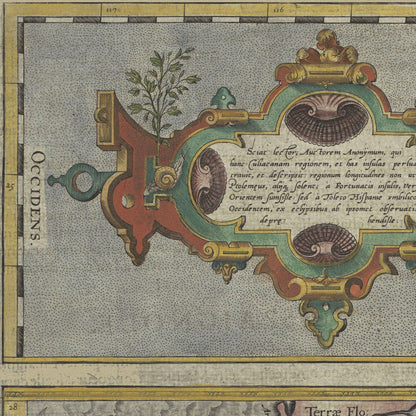 117
116
Sciat lector, Auctorem Anonÿmum, qui
hanc Culiacanam regionem, et has insulas perlus
travit, et descripsit: regionum longitudines non ut
Ptolemeus, alijq₃ solent, a Fortunatis insulis, ve
Orientem sumsisse: sed à Toleto Hispaniæ umbilico
Occidentem, ex eclipsibus ab ipsomet observatis
depre hendisse.
25
OCCIDENS.
28
Terræ Flo: